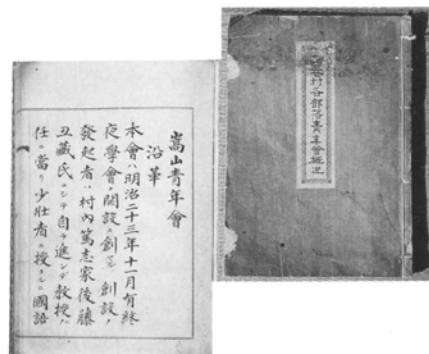 嵩山青年會
沿革
本會ハ明治二十三年十一月有終
夜學會ノ開設ニ創マル創設ノ
發起者ハ村内篤志家後藤
丑藏氏ニシテ自ラ進ンデ教授ノ
任ニ當リ少壯者ニ授クルニ國語
村各部落青年會概況